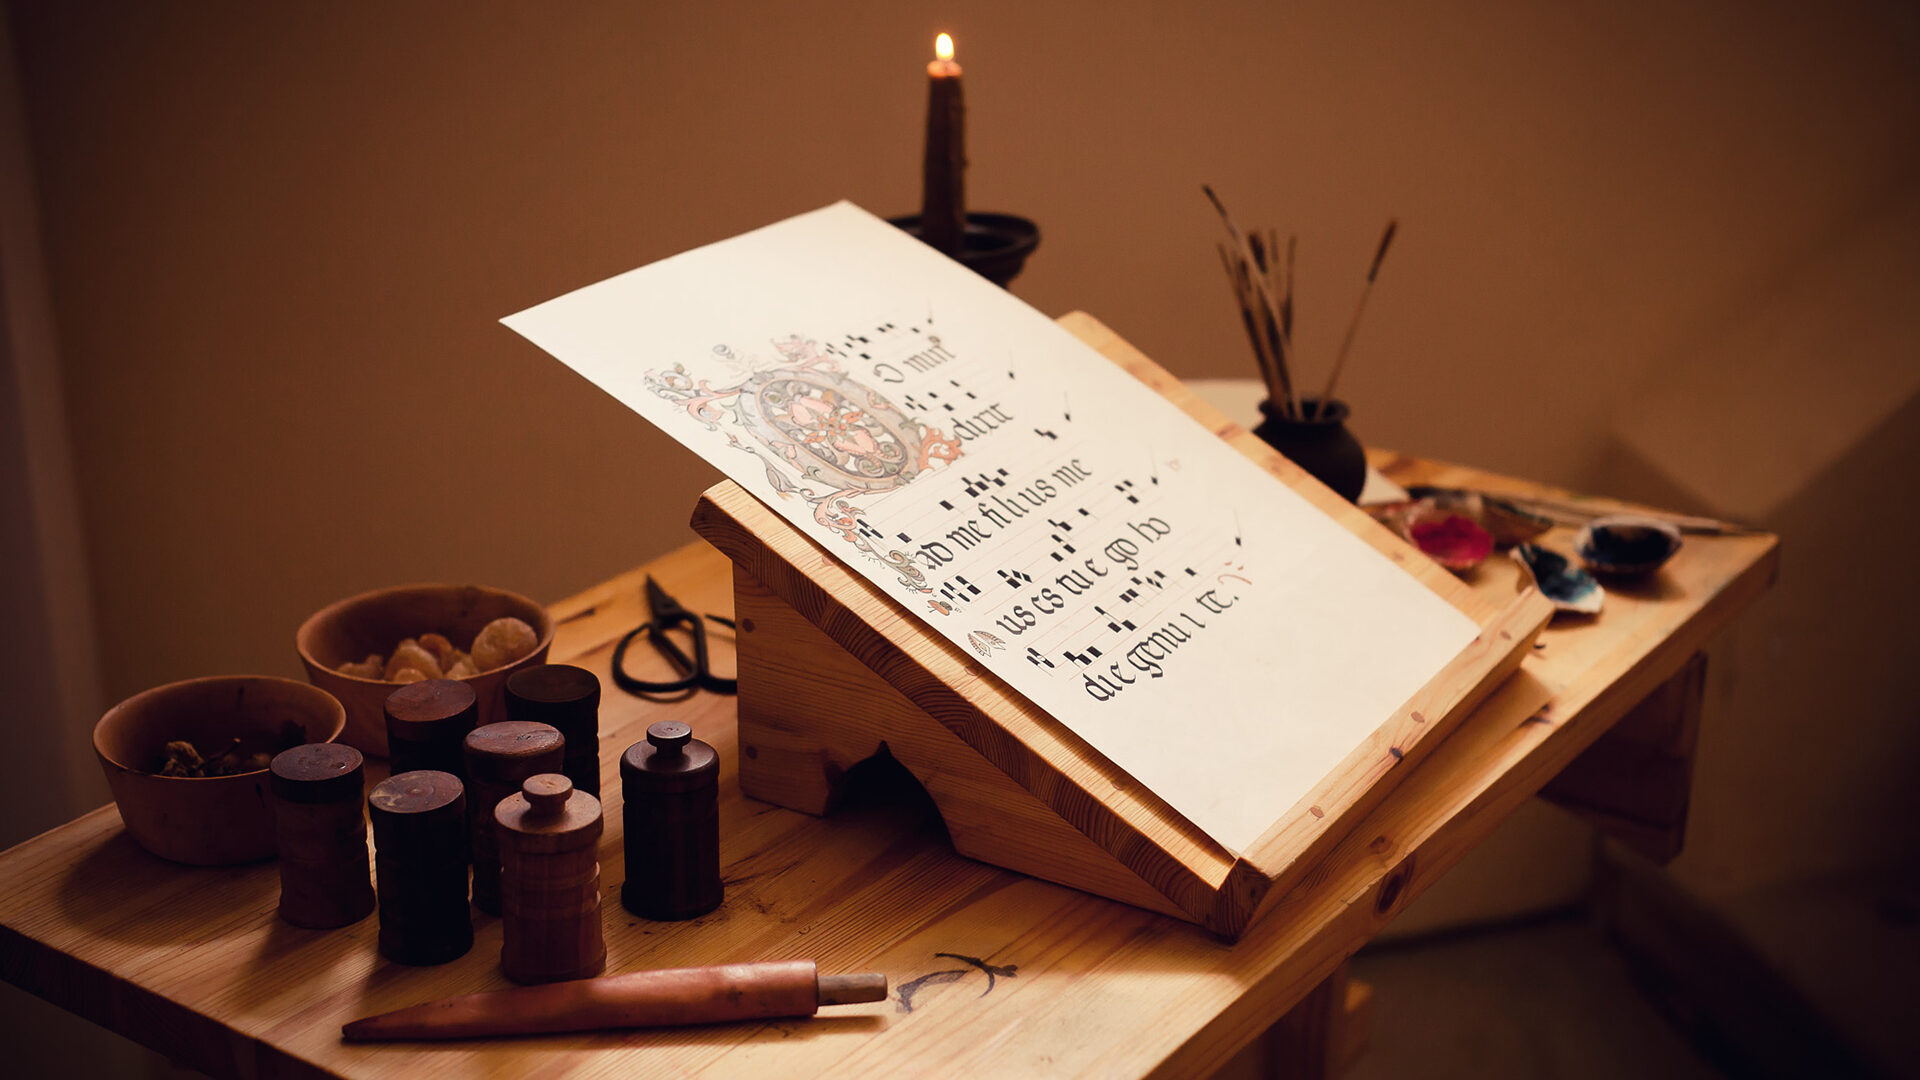 dixit
ad me fili us me
us es tu e go ho
die genu i te.